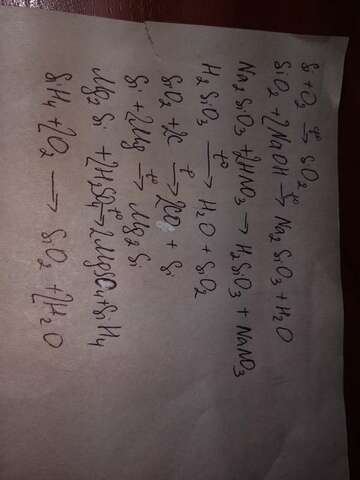 Si + O₂ →t° SiO₂
SiO₂ + 2NaOH →t° Na₂SiO₃ + H₂O
Na₂SiO₃ + 2HNO₃ → H₂SiO₃ + NaNO₃
H₂SiO₃ →t° H₂O + SiO₂
SiO₂ + 2C →t° 2CO + Si
Si + 2Mg →t° Mg₂Si
Mg₂Si + 2H₂SO₄ →t° 2MgSO₄ + SiH₄
SiH₄ + 2O₂ → SiO₂ + 2H₂O